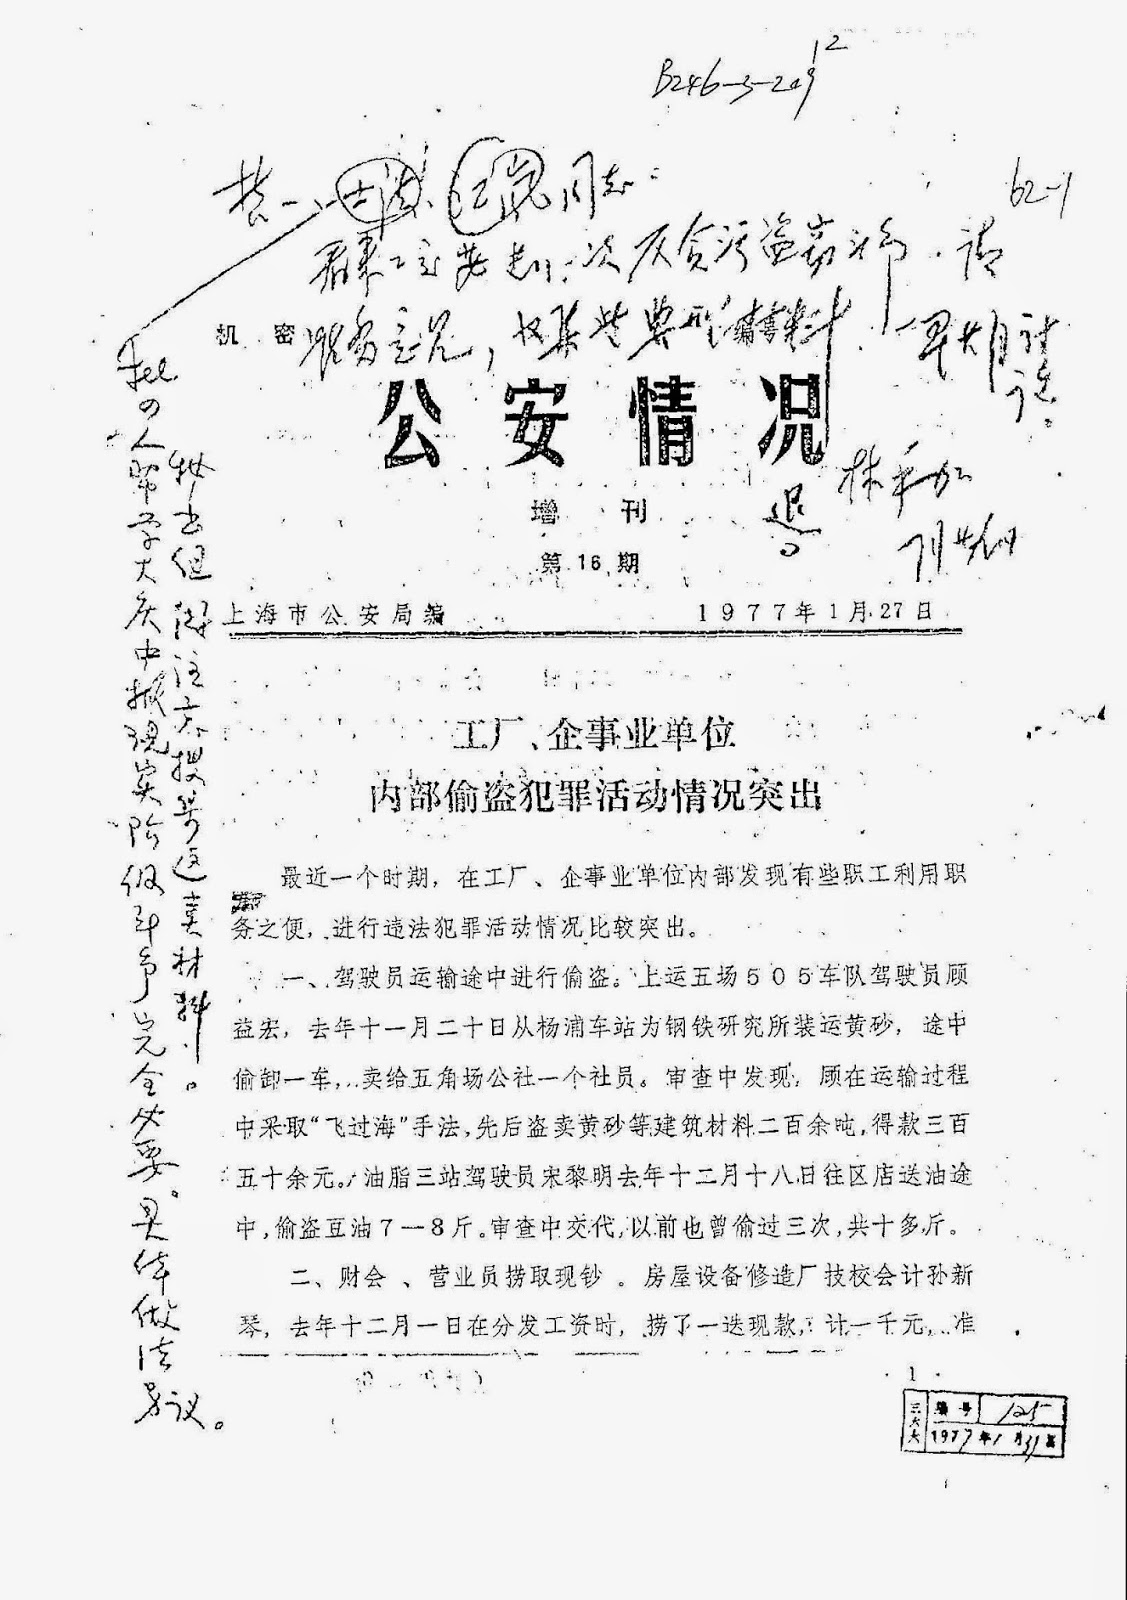 B246-3-209
62-1
同志:
机密
公安情况
增刊
第16期
退
上海市公安局编 1977年1月27日
工厂、企事业单位
内部偷盗犯罪活动情况突出
最近一个时期，在工厂、企事业单位内部发现有些职工利用职
务之便，进行违法犯罪活动情况比较突出。
一、驾驶员运输途中进行偷盗。上运五场505车队驾驶员顾
益宏，去年十一月二十日从杨浦车站为钢铁研究所装运黄砂，途中
偷卸一车，卖给五角场公社一个社员。审查中发现，顾在运输过程
中采取“飞过海”手法，先后盗卖黄砂等建筑材料二百余吨，得款三百
五十余元。油脂三站驾驶员宋黎明去年十二月十八日往区店送油途
中，偷盗豆油7—8斤。审查中交代，以前也曾偷过三次，共十多斤。
二、财会、营业员捞取现钞。房屋设备修造厂技校会计孙新
琴，去年十二月一日在分发工资时，捞了一迭现款，计一千元，准
学大庆中抓现实阶级斗争完全必要。具体做法另议。
注意搜集这类材料。
·1·
三六六
编号 125
1977年1月31日